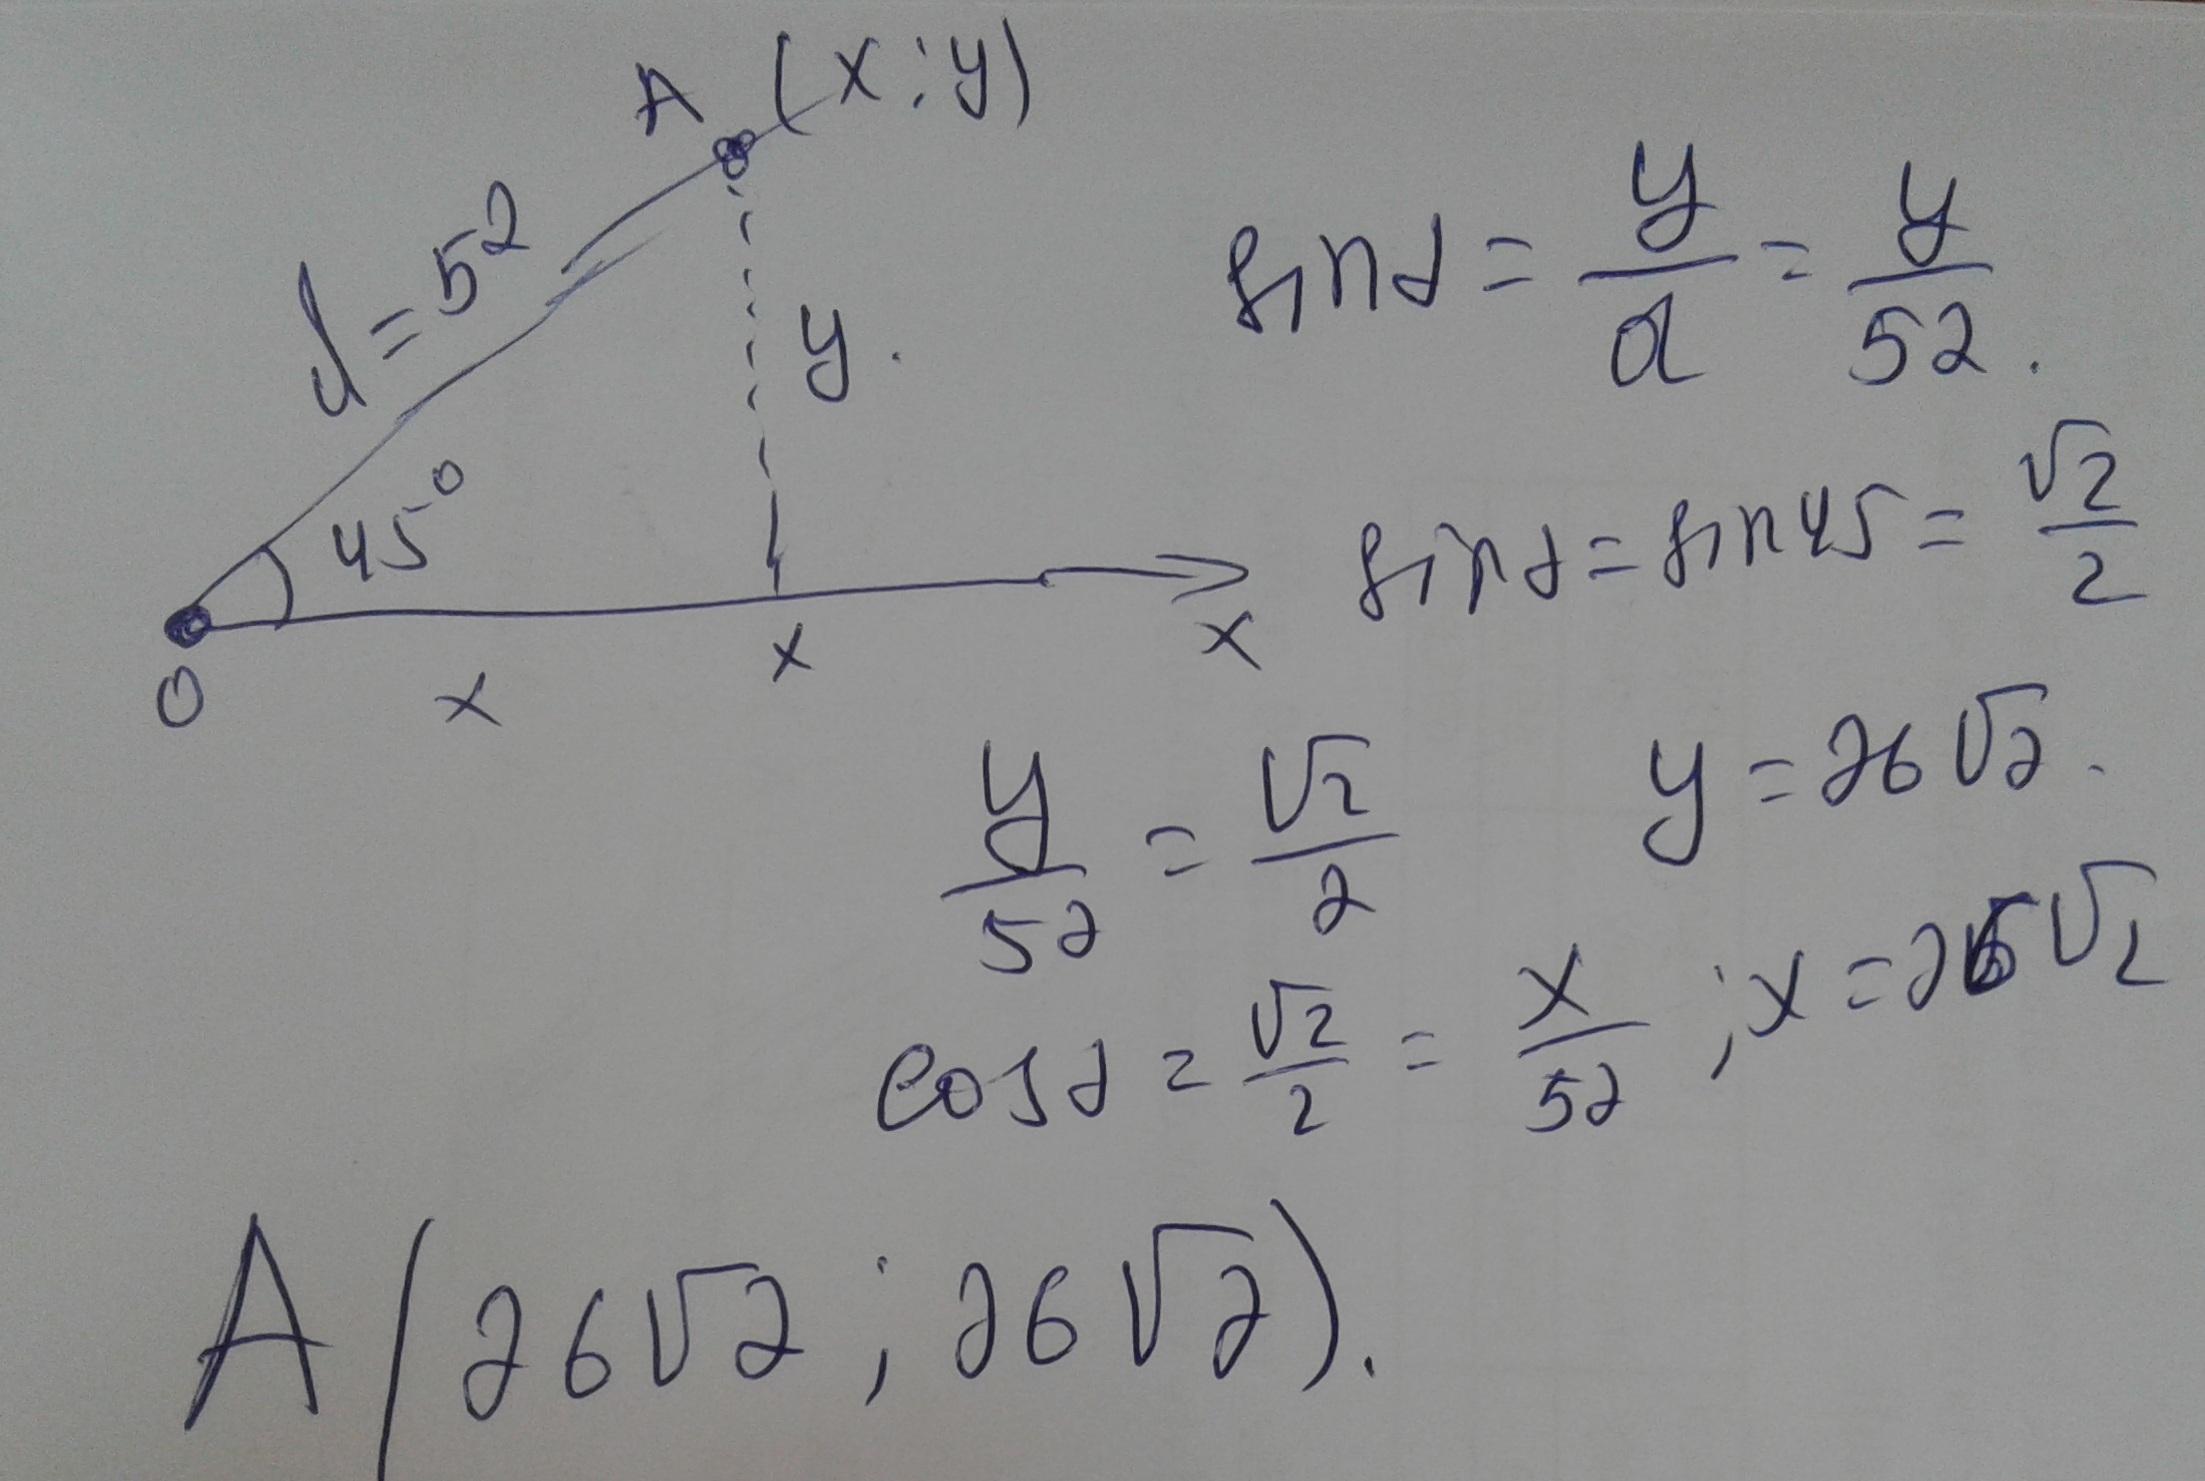 A (x;y)
d=52
y.
45°
O x x x
sinα = y/d = y/52.
sinα = sin45 = √2/2
y/52 = √2/2 y = 26√2.
cosα = √2/2 = x/52 ; x = 26√2
A(26√2 ; 26√2).